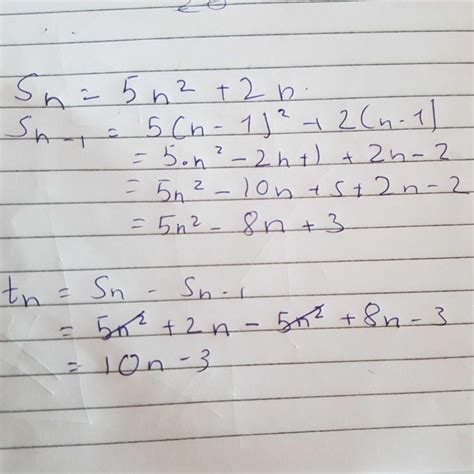 Sn = 5n² + 2n.
Sn-1 = 5(n-1)² + 2(n-1)
= 5.n² - 2n+1 + 2n-2
= 5n² - 10n + 5 + 2n - 2
= 5n² - 8n + 3
tn = Sn - Sn-1
= 5n² + 2n - 5n² + 8n - 3
= 10n - 3